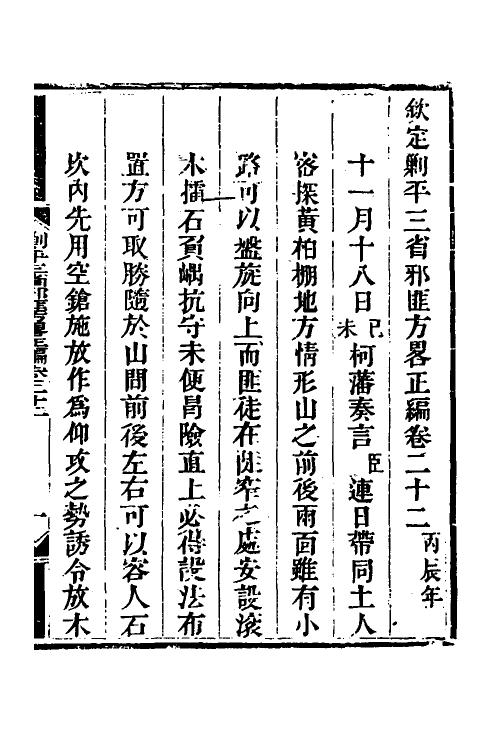 欽定剿平三省邪匪方畧正編卷二十二丙辰年
十一月十八日己未柯藩奏言臣連日帶同土人
密探黃柏棚地方情形山之前後兩面雖有小
路可以盤旋向上而匪徒在狹窄之處安設滾
木擂石負嵎抗守未便冒險直上必得設法布
置方可取勝隨於山間前後左右可以容人石
坎內先用空鎗施放作為仰攻之勢誘令放木